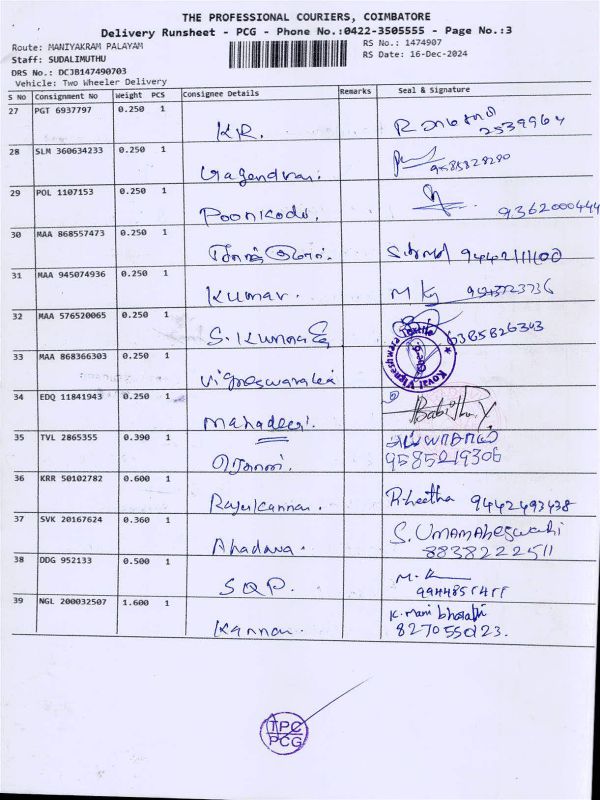 THE PROFESSIONAL COURIERS, COIMBATORE
Delivery Runsheet - PCG - Phone No.:0422-3505555 - Page No.:3
Route: MANIYAKRAM PALAYAM
RS No.: 1474907
Staff: SUDALIMUTHU
RS Date: 16-Dec-2024
DRS No.: DCJB147490703
Vehicle: Two Wheeler Delivery
S No Consignment No Weight PCS Consignee Details Remarks Seal & Signature
27 PGT 6937797 0.250 1 K.R. 2539964
28 SLM 360634233 0.250 1 Gajendran. 9585828290
29 POL 1107153 0.250 1 Poonkodi. 9362000444
30 MAA 868557473 0.250 1 9442111100
31 MAA 945074936 0.250 1 Kumar. M Kj
32 MAA 576520065 0.250 1 6385826343
33 MAA 868366303 0.250 1 Vigneswaralex
Kovai Vigneshwara Textile
34 EDQ 11841943 0.250 1 Mahadevi.
35 TVL 2865355 0.390 1 9585219306
36 KRR 50102782 0.600 1 Rajeskannan. R.heetha 9442493438
37 SVK 20167624 0.360 1 Ahadana. S. Umamaheswari
8838222511
38 DDG 952133 0.500 1 SQP.
39 NGL 200032507 1.600 1 Kannan. K. mani bharathi
8270550123.
TPC
PCG